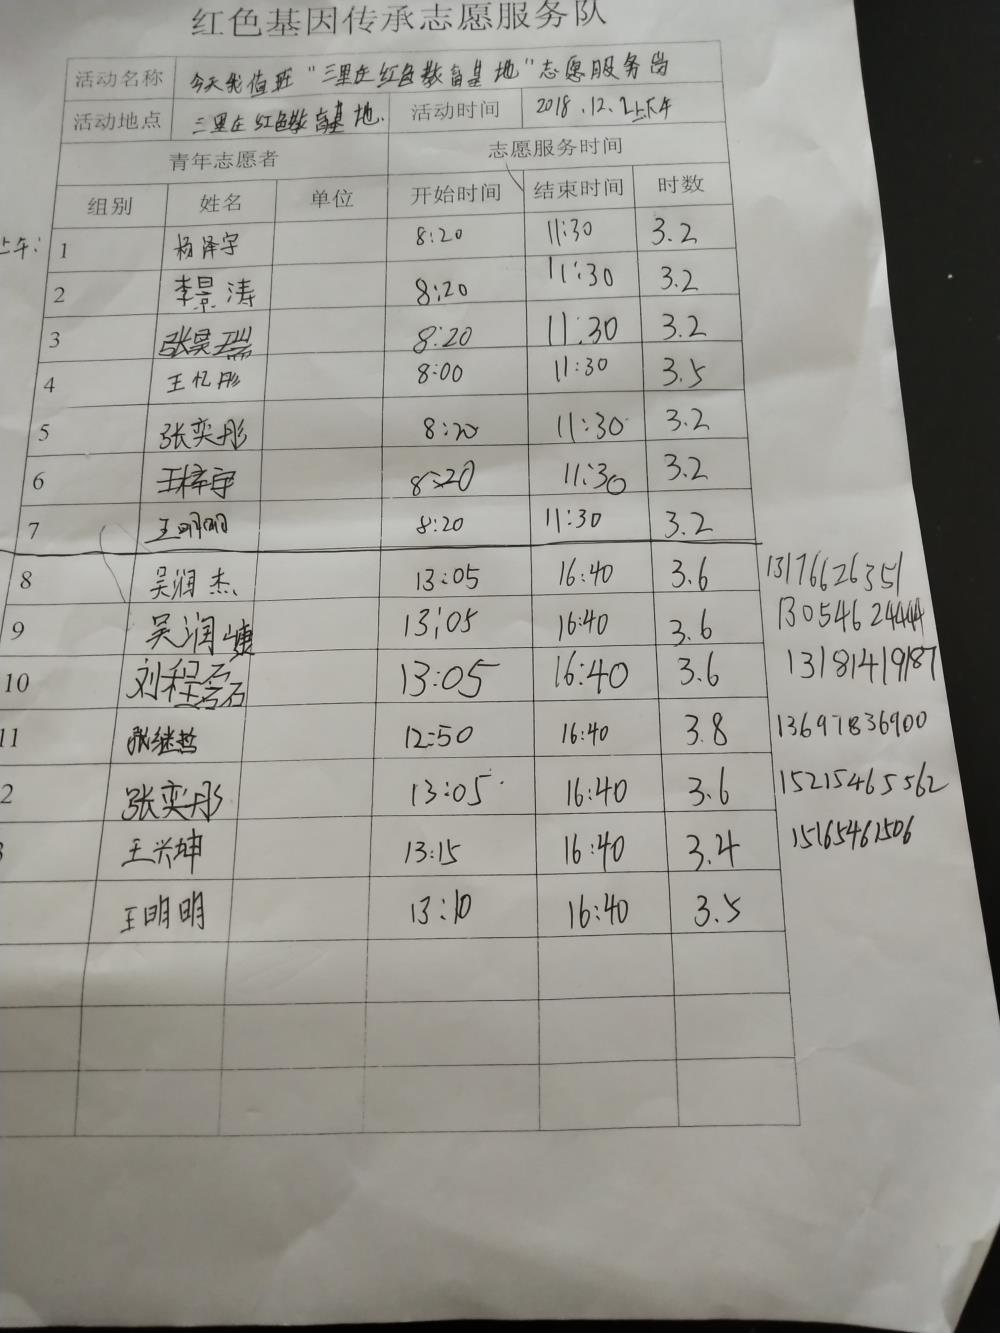 红色基因传承志愿服务队
活动名称 今天我值班“三里庄红色教育基地”志愿服务岗
活动地点 三里庄红色教育基地. 活动时间 2018.12.2上下午
青年志愿者 志愿服务时间
组别 姓名 单位 开始时间 结束时间 时数
上午:
1 杨泽宇 8:20 11:30 3.2
2 李景涛 8:20 11:30 3.2
3 张昊瑞 8:20 11:30 3.2
4 王忆彤 8:00 11:30 3.5
5 张奕彤 8:20 11:30 3.2
6 王梓宇 8:20 11:30 3.2
7 王明明 8:20 11:30 3.2
8 吴润杰 13:05 16:40 3.6 13176626351
9 吴润 13:05 16:40 3.6 13054624444
10 刘程磊 13:05 16:40 3.6 13181419187
11 张继哲 12:50 16:40 3.8 13697836900
2 张奕彤 13:05 16:40 3.6 15215465562
3 王兴坤 13:15 16:40 3.4 15165461506
王明明 13:10 16:40 3.5